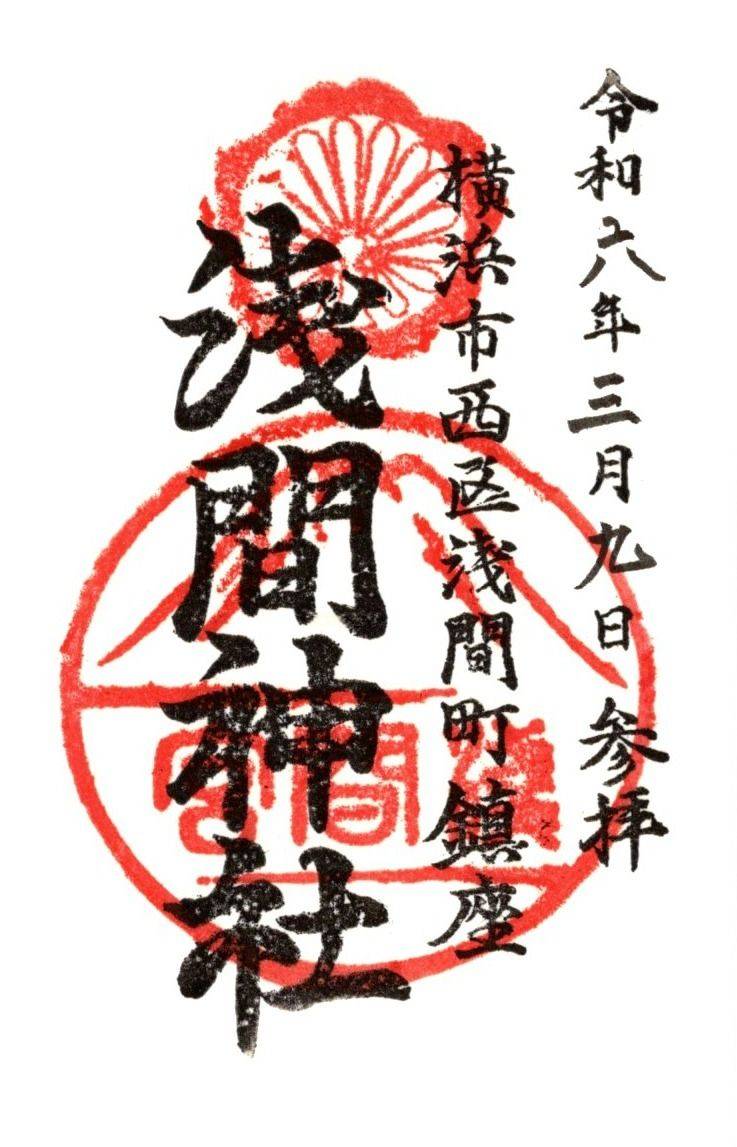 令和六年三月九日 参拝
横浜市西区浅間町鎮座
浅間神社